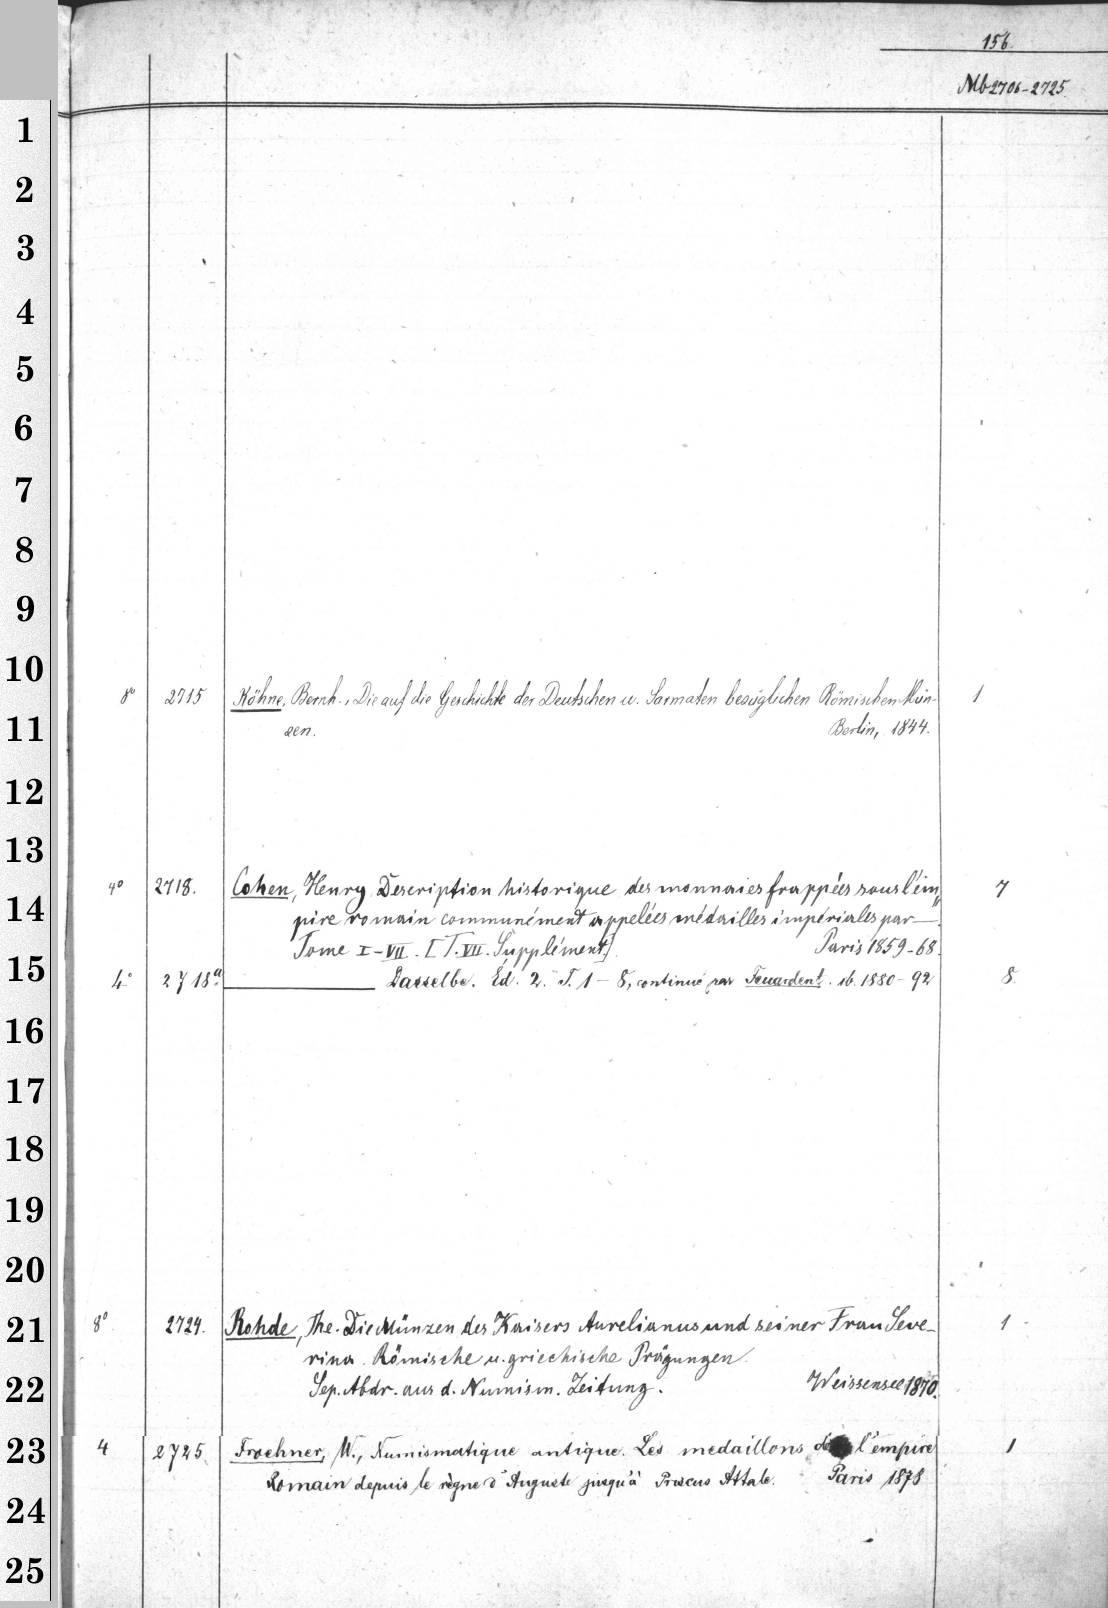 156.
Mb 2706-2725.
1
2
3
4
5
6
7
8
9
10
8° 2715 Köhne, Bernh., Die auf die Geschichte der Deutschen u. Sarmaten bezüglichen Römischen Mün- 1
11
zen. Berlin, 1844.
12
13
4° 2718. Cohen, Henry Description historique des monnaies frappées sous l'em„ 7
14
pire romain communément appelées médailles impériales par —
Tome I-VII. [T. VII. Supplément]. Paris 1859-68.
15
4° 2718a. Dasselbe. Éd. 2. T. 1-8, continué par Feuardent. ib. 1880-92 8.
16
17
18
19
20
21
8° 2724. Rohde, The. Die Münzen des Kaisers Aurelianus und seiner Frau Seve- 1
rina. Römische u. griechische Prägungen.
22
Sep. Abdr. aus d. Numism. Zeitung. Weissensee
23
4 2725. Froehner, W., Numismatique antique. Les medaillons de l'empire 1
Romain depuis le règne d'Auguste jusqu'à Priscus Attale. Paris 1878
24
25